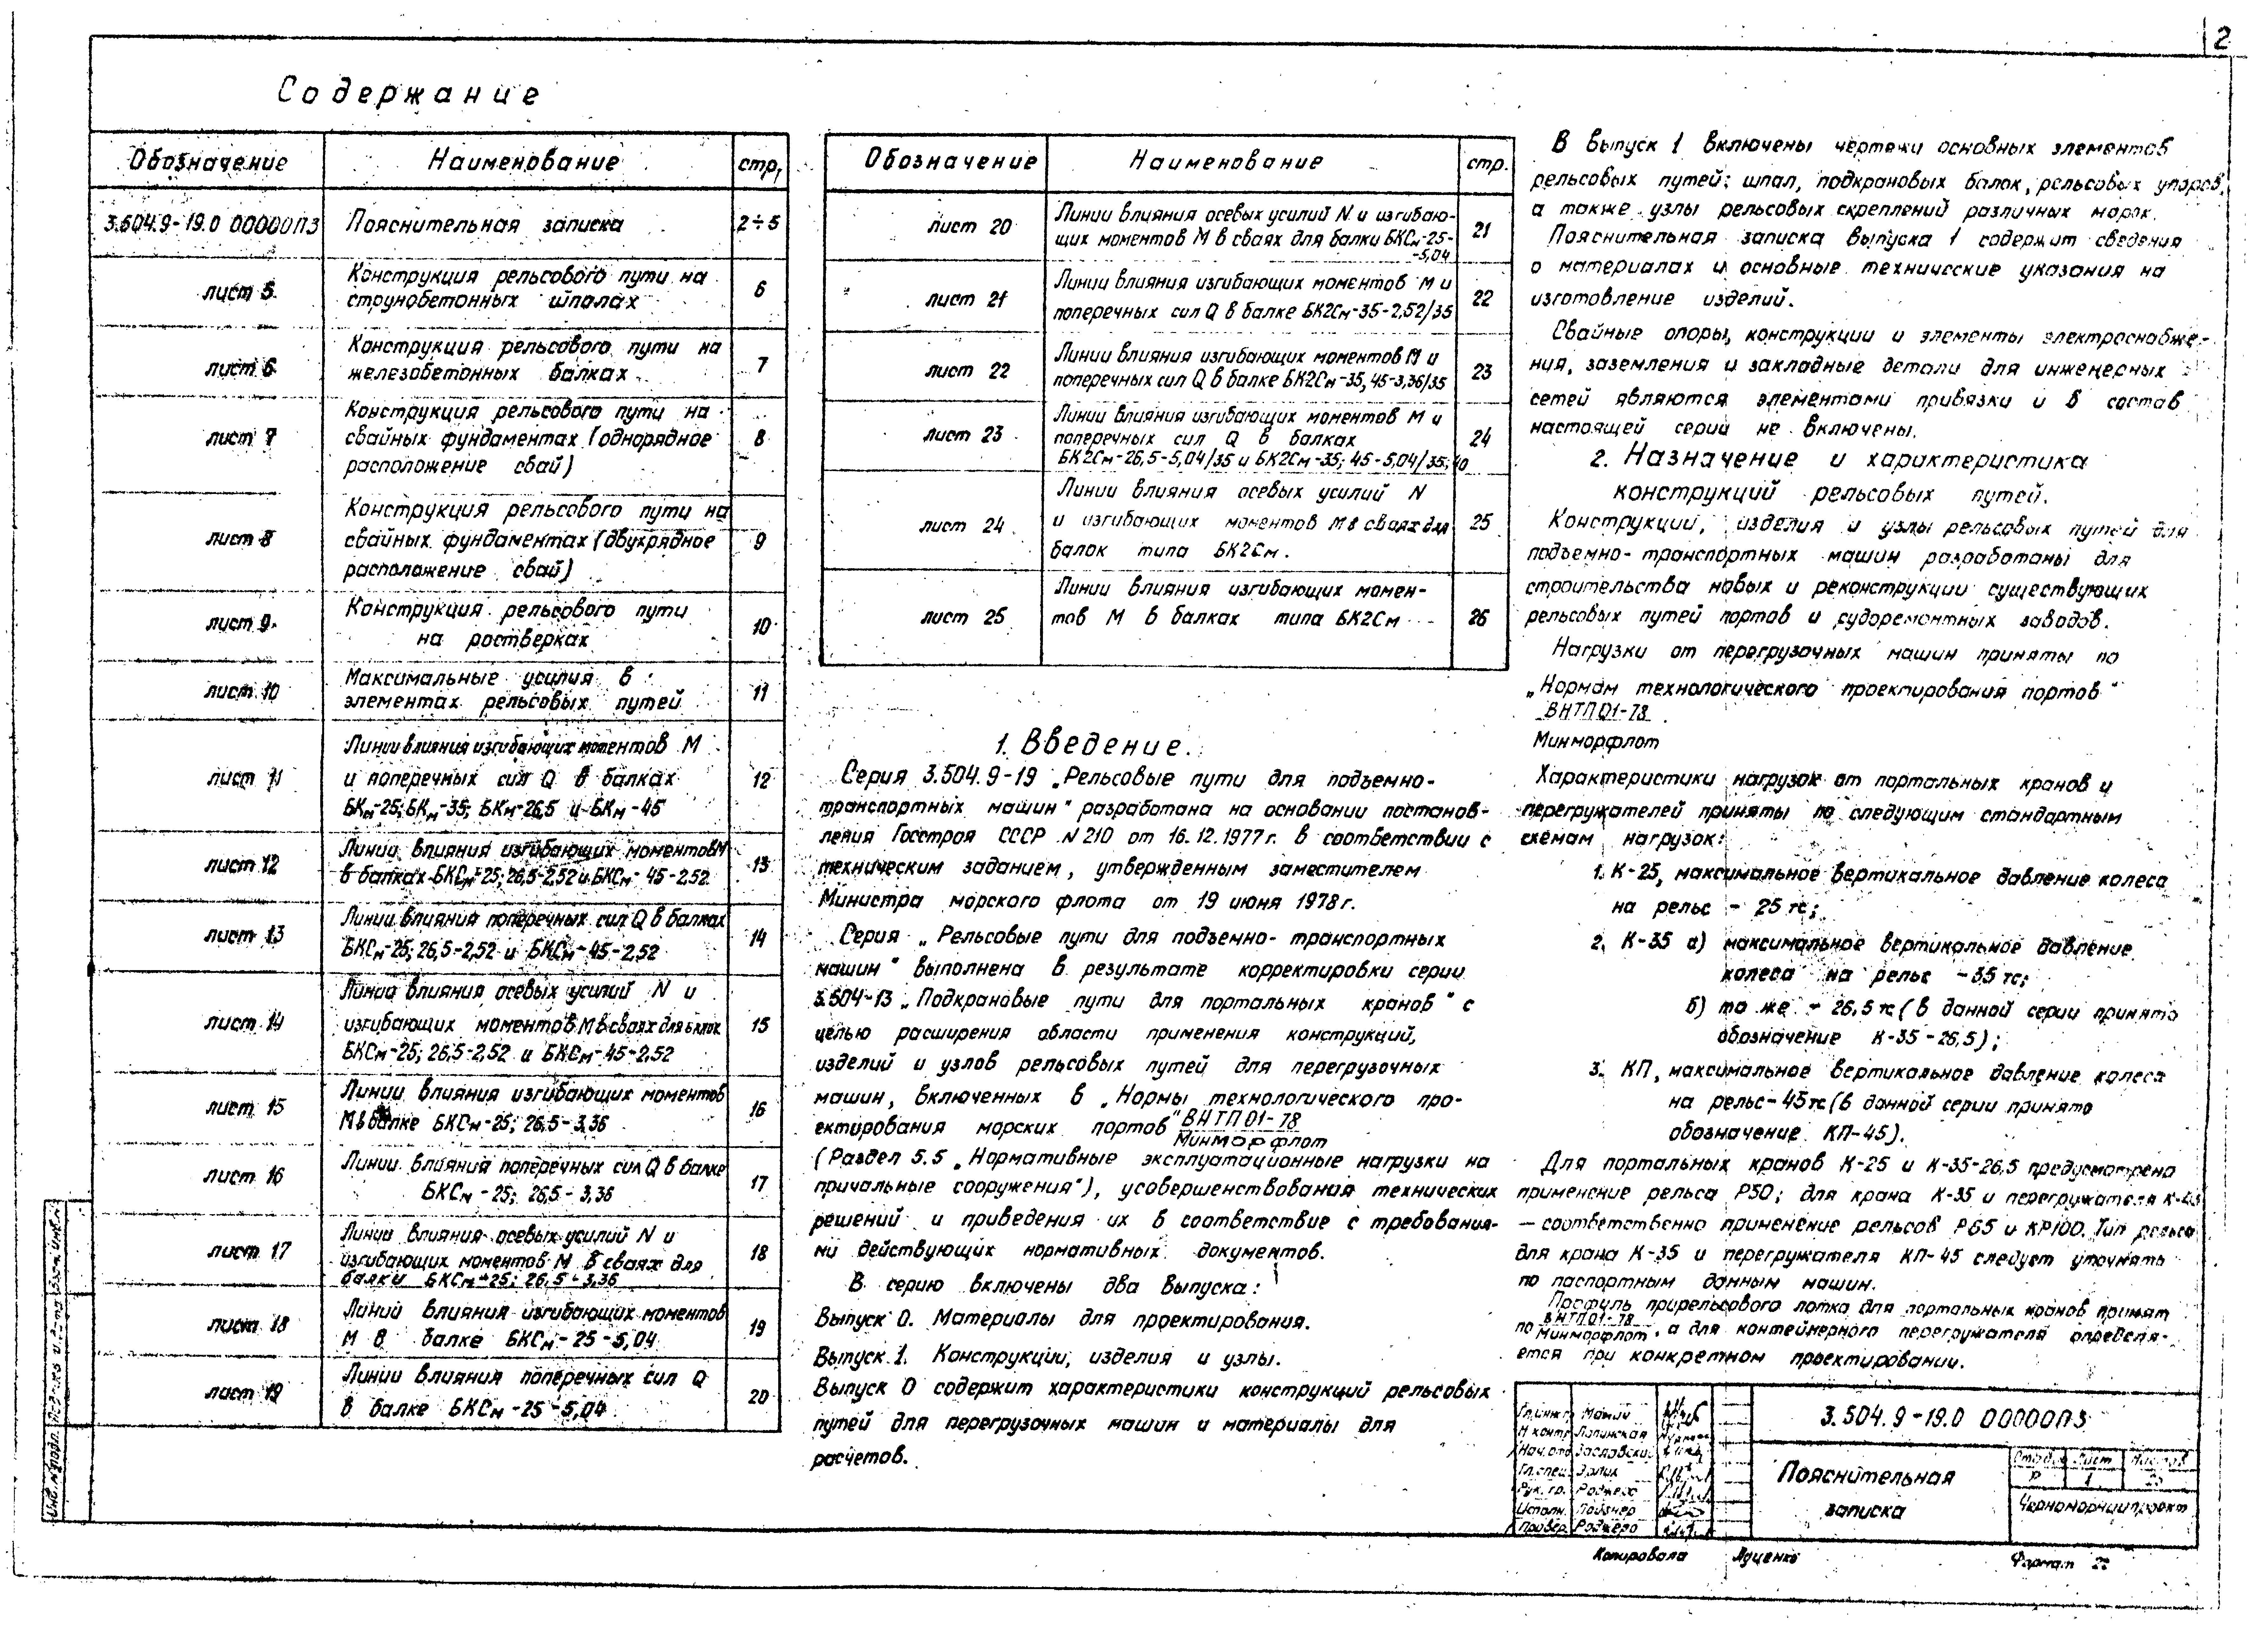 2
Содержание
Обозначение Наименование стр.
3.504.9-19.0 00000ПЗ Пояснительная записка 2÷5
лист 5 Конструкция рельсового пути на струнобетонных шпалах 6
лист 6 Конструкция рельсового пути на железобетонных балках 7
лист 7 Конструкция рельсового пути на свайных фундаментах (однорядное расположение свай) 8
лист 8 Конструкция рельсового пути на свайных фундаментах (двухрядное расположение свай) 9
лист 9 Конструкция рельсового пути на ростверках 10
лист 10 Максимальные усилия в элементах рельсовых путей 11
лист 11 Линии влияния изгибающих моментов М и поперечных сил Q в балках БКм-25; БКм-35; БКм-26,5 и БКм-45 12
лист 12 Линии влияния изгибающих моментов М в балках БКСм-25; 26,5-2,52 и БКСм-45-2,52 13
лист 13 Линии влияния поперечных сил Q в балках БКСм-25; 26,5-2,52 и БКСм-45-2,52 14
лист 14 Линии влияния осевых усилий N и изгибающих моментов М в сваях для балок БКСм-25; 26,5-2,52 и БКСм-45-2,52 15
лист 15 Линии влияния изгибающих моментов М в балке БКСм-25; 26,5-3,36 16
лист 16 Линии влияния поперечных сил Q в балке БКСм-25; 26,5-3,36 17
лист 17 Линии влияния осевых усилий N и изгибающих моментов М в сваях для балки БКСм-25; 26,5-3,36 18
лист 18 Линии влияния изгибающих моментов М в балке БКСм-25-5,04 19
лист 19 Линии влияния поперечных сил Q в балке БКСм-25-5,04 20
Обозначение Наименование стр.
лист 20 Линии влияния осевых усилий N и изгибающих моментов М в сваях для балки БКСм-25-5,04 21
лист 21 Линии влияния изгибающих моментов М и поперечных сил Q в балке БК2См-35-2,52/35 22
лист 22 Линии влияния изгибающих моментов М и поперечных сил Q в балке БК2См-35, 45-3,36/35 23
лист 23 Линии влияния изгибающих моментов М и поперечных сил Q в балках БК2См-26,5-5,04/35 и БК2См-35; 45-5,04/35;40 24
лист 24 Линии влияния осевых усилий N и изгибающих моментов М в сваях для балок типа БК2См. 25
лист 25 Линии влияния изгибающих моментов М в балках типа БК2См 26
1. Введение.
Серия 3.504.9-19 „Рельсовые пути для подъемно-
транспортных машин" разработана на основании постанов-
ления Госстроя СССР N 210 от 16.12.1977г. в соответствии с
техническим заданием, утвержденным заместителем
Министра морского флота от 19 июня 1978г.
Серия „Рельсовые пути для подъемно-транспортных
машин" выполнена в результате корректировки серии
3.504-13 „Подкрановые пути для портальных кранов" с
целью расширения области применения конструкций,
изделий и узлов рельсовых путей для перегрузочных
машин, включенных в „Нормы технологического про-
ектирования морских портов" ВНТП 01-78
Минморфлот
(Раздел 5.5 „Нормативные эксплуатационные нагрузки на
причальные сооружения"), усовершенствования технических
решений и приведения их в соответствие с требования-
ми действующих нормативных документов.
В серию включены два выпуска:
Выпуск 0. Материалы для проектирования.
Выпуск 1. Конструкции, изделия и узлы.
Выпуск 0 содержит характеристики конструкций рельсовых
путей для перегрузочных машин и материалы для
расчетов.
В выпуск 1 включены чертежи основных элементов
рельсовых путей: шпал, подкрановых балок, рельсовых упоров,
а также узлы рельсовых скреплений различных марок.
Пояснительная записка выпуска 1 содержит сведения
о материалах и основные технические указания на
изготовление изделий.
Свайные опоры, конструкции и элементы электроснабже-
ния, заземления и закладные детали для инженерных
сетей являются элементами привязки и в состав
настоящей серии не включены.
2. Назначение и характеристика
конструкций рельсовых путей.
Конструкции, изделия и узлы рельсовых путей для
подъемно-транспортных машин разработаны для
строительства новых и реконструкции существующих
рельсовых путей портов и судоремонтных заводов.
Нагрузки от перегрузочных машин приняты по
„Нормам технологического проектирования портов"
ВНТП 01-78
Минморфлот
Характеристики нагрузок от портальных кранов и
перегружателей приняты по следующим стандартным
схемам нагрузок:
1. К-25, максимальное вертикальное давление колеса
на рельс - 25 тс;
2. К-35 а) максимальное вертикальное давление
колеса на рельс - 35 тс;
б) то же - 26,5 тс (в данной серии принято
обозначение К-35-26,5);
3. КП, максимальное вертикальное давление колеса
на рельс - 45 тс (в данной серии принято
обозначение КП-45).
Для портальных кранов К-25 и К-35-26,5 предусмотрено
применение рельса Р50; для крана К-35 и перегружателя К-45
— соответственно применение рельсов Р65 и КР100. Тип рельса
для крана К-35 и перегружателя КП-45 следует уточнять
по паспортным данным машин.
Профиль прирельсового лотка для портальных кранов принят
по ВНТП 01-78
Минморфлот, а для контейнерного перегружателя определя-
ется при конкретном проектировании.
3.504.9-19.0 00000ПЗ
Пояснительная
записка
Стадия Лист Листов
Р 1
Черноморниипроект
Н.контр. Лапинская
Нач.отд. Заславский
Гл.спец.
Рук. гр. Роджеро
Исполн.
Провер. Роджеро
Копировала Луценко Формат
Инв.№ подл. Подпись и дата Взам.инв.№